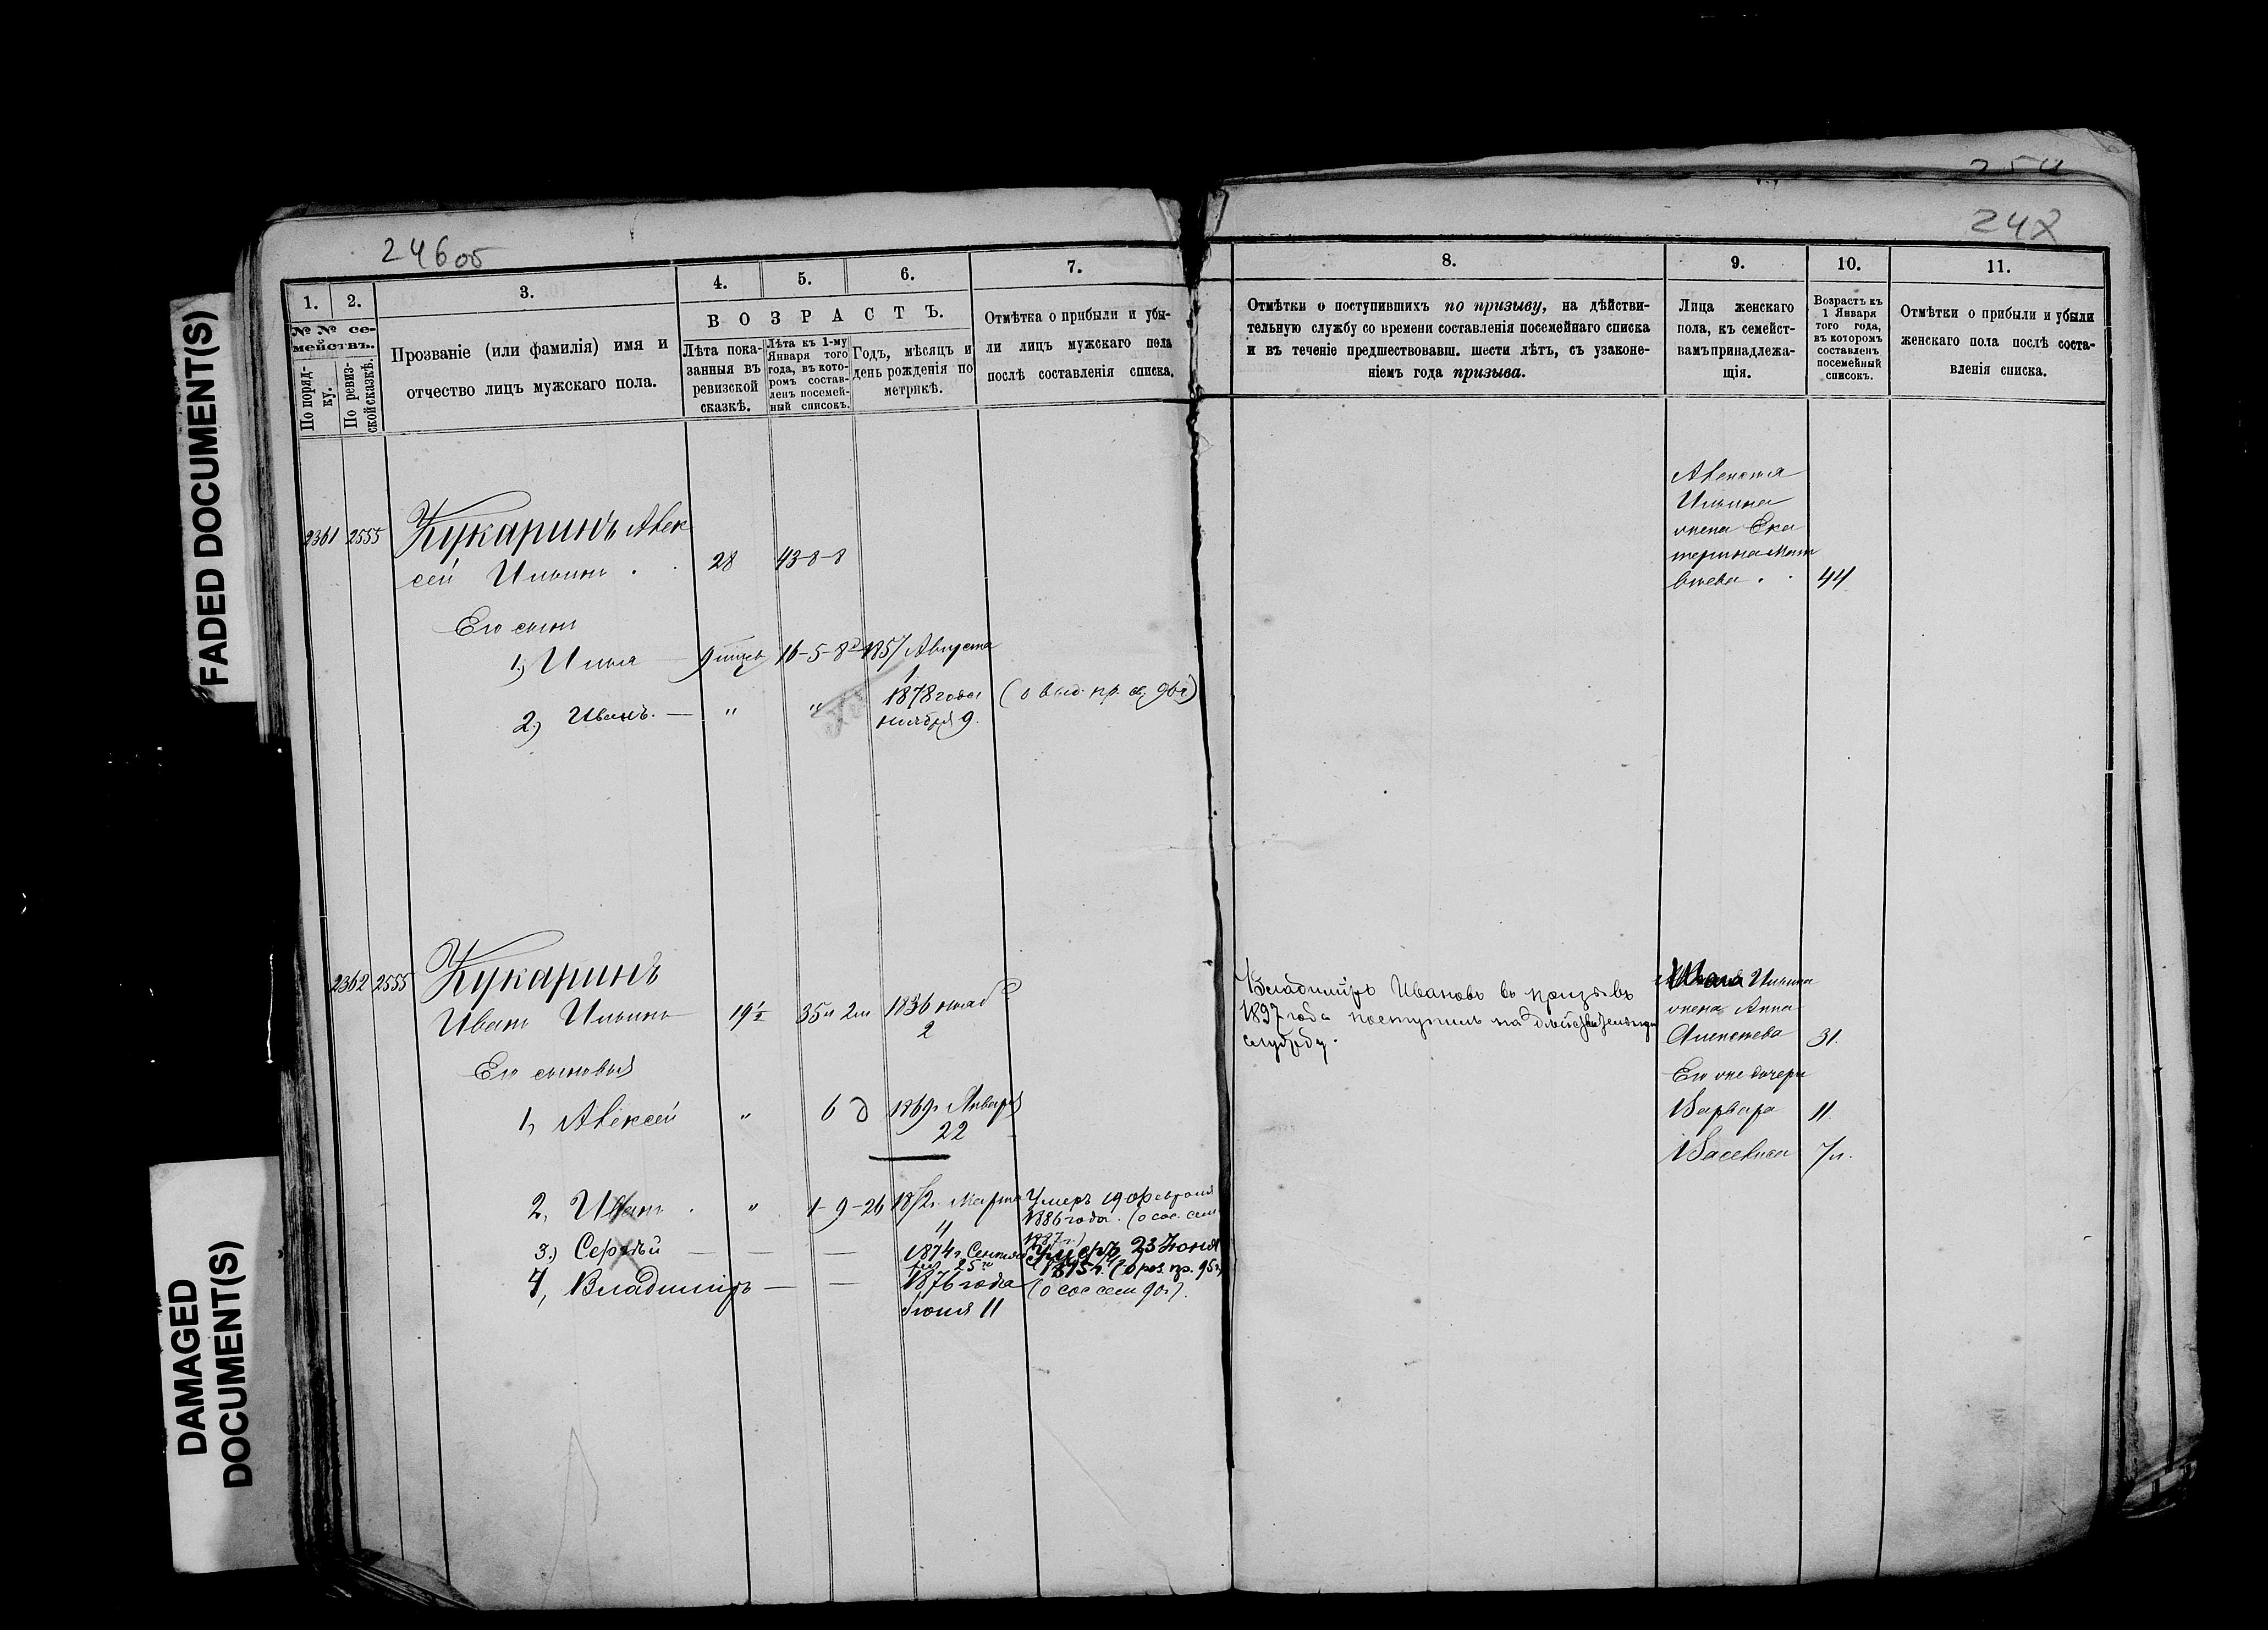 246 об
242
FADED DOCUMENT(S)
DAMAGED
DOCUMENT(S)
1.
2.
3.
4.
5.
6.
7.
№ № се-
мействъ.
По поряд-
ку.
По ревиз-
ской сказкѣ.
Прозваніе (или фамилія) имя и
отчество лицъ мужскаго пола.
ВОЗРАСТЪ.
Лѣта пока-
занныя въ
ревизской
сказкѣ.
Лѣта къ 1-му
Января того
года, въ кото-
ромъ состав-
ленъ посемей-
ный списокъ.
Годъ, мѣсяцъ и
день рожденія по
метрикѣ.
Отмѣтка о прибыли и убы-
ли лицъ мужскаго пола
послѣ составленія списка.
8.
9.
10.
11.
Отмѣтки о поступившихъ по призыву, на дѣйстви-
тельную службу со времени составленія посемейнаго списка
и въ теченіе предшествовавш. шести лѣтъ, съ узаконе-
ніемъ года призыва.
Лица женскаго
пола, къ семейст-
вамъ принадлежа-
щія.
Возрастъ къ
1 Января
того года,
въ которомъ
составленъ
посемейный
списокъ.
Отмѣтки о прибыли и убыли
женскаго пола послѣ соста-
вленія списка.
2361 2555 Кукаринъ Алек
сей Ильинъ 28 43-8-8
Его сынъ
1) Илья 16-5-8 1857 Августа
2) Иванъ. — " " 1878 года
ноября 9.
Алексѣя
Ильина
жена Ека
терина Мат
вѣева 44
2362 2555 Кукаринъ
Иванъ Ильинъ 19½ 35 2 1836
2
Его сыновья
1, Алексей " 6 1869 г. Января
22
2, Иванъ " 1-9-26 1872 г. Марта Умеръ 19 февраля
4 1886 года.
1887 г.)
3) Сергѣй — — — 1874 г. Сентяб 23 Іюня
25
4, Владиміръ — — 1876 года
Іюня 11
Владиміръ Ивановъ въ призывъ
1897 года поступилъ на действительную
службу.
Ивана Ильина
жена Анна
Алексѣева 31.
Его же дочери
Варвара 11.
Васелиса 7 л.